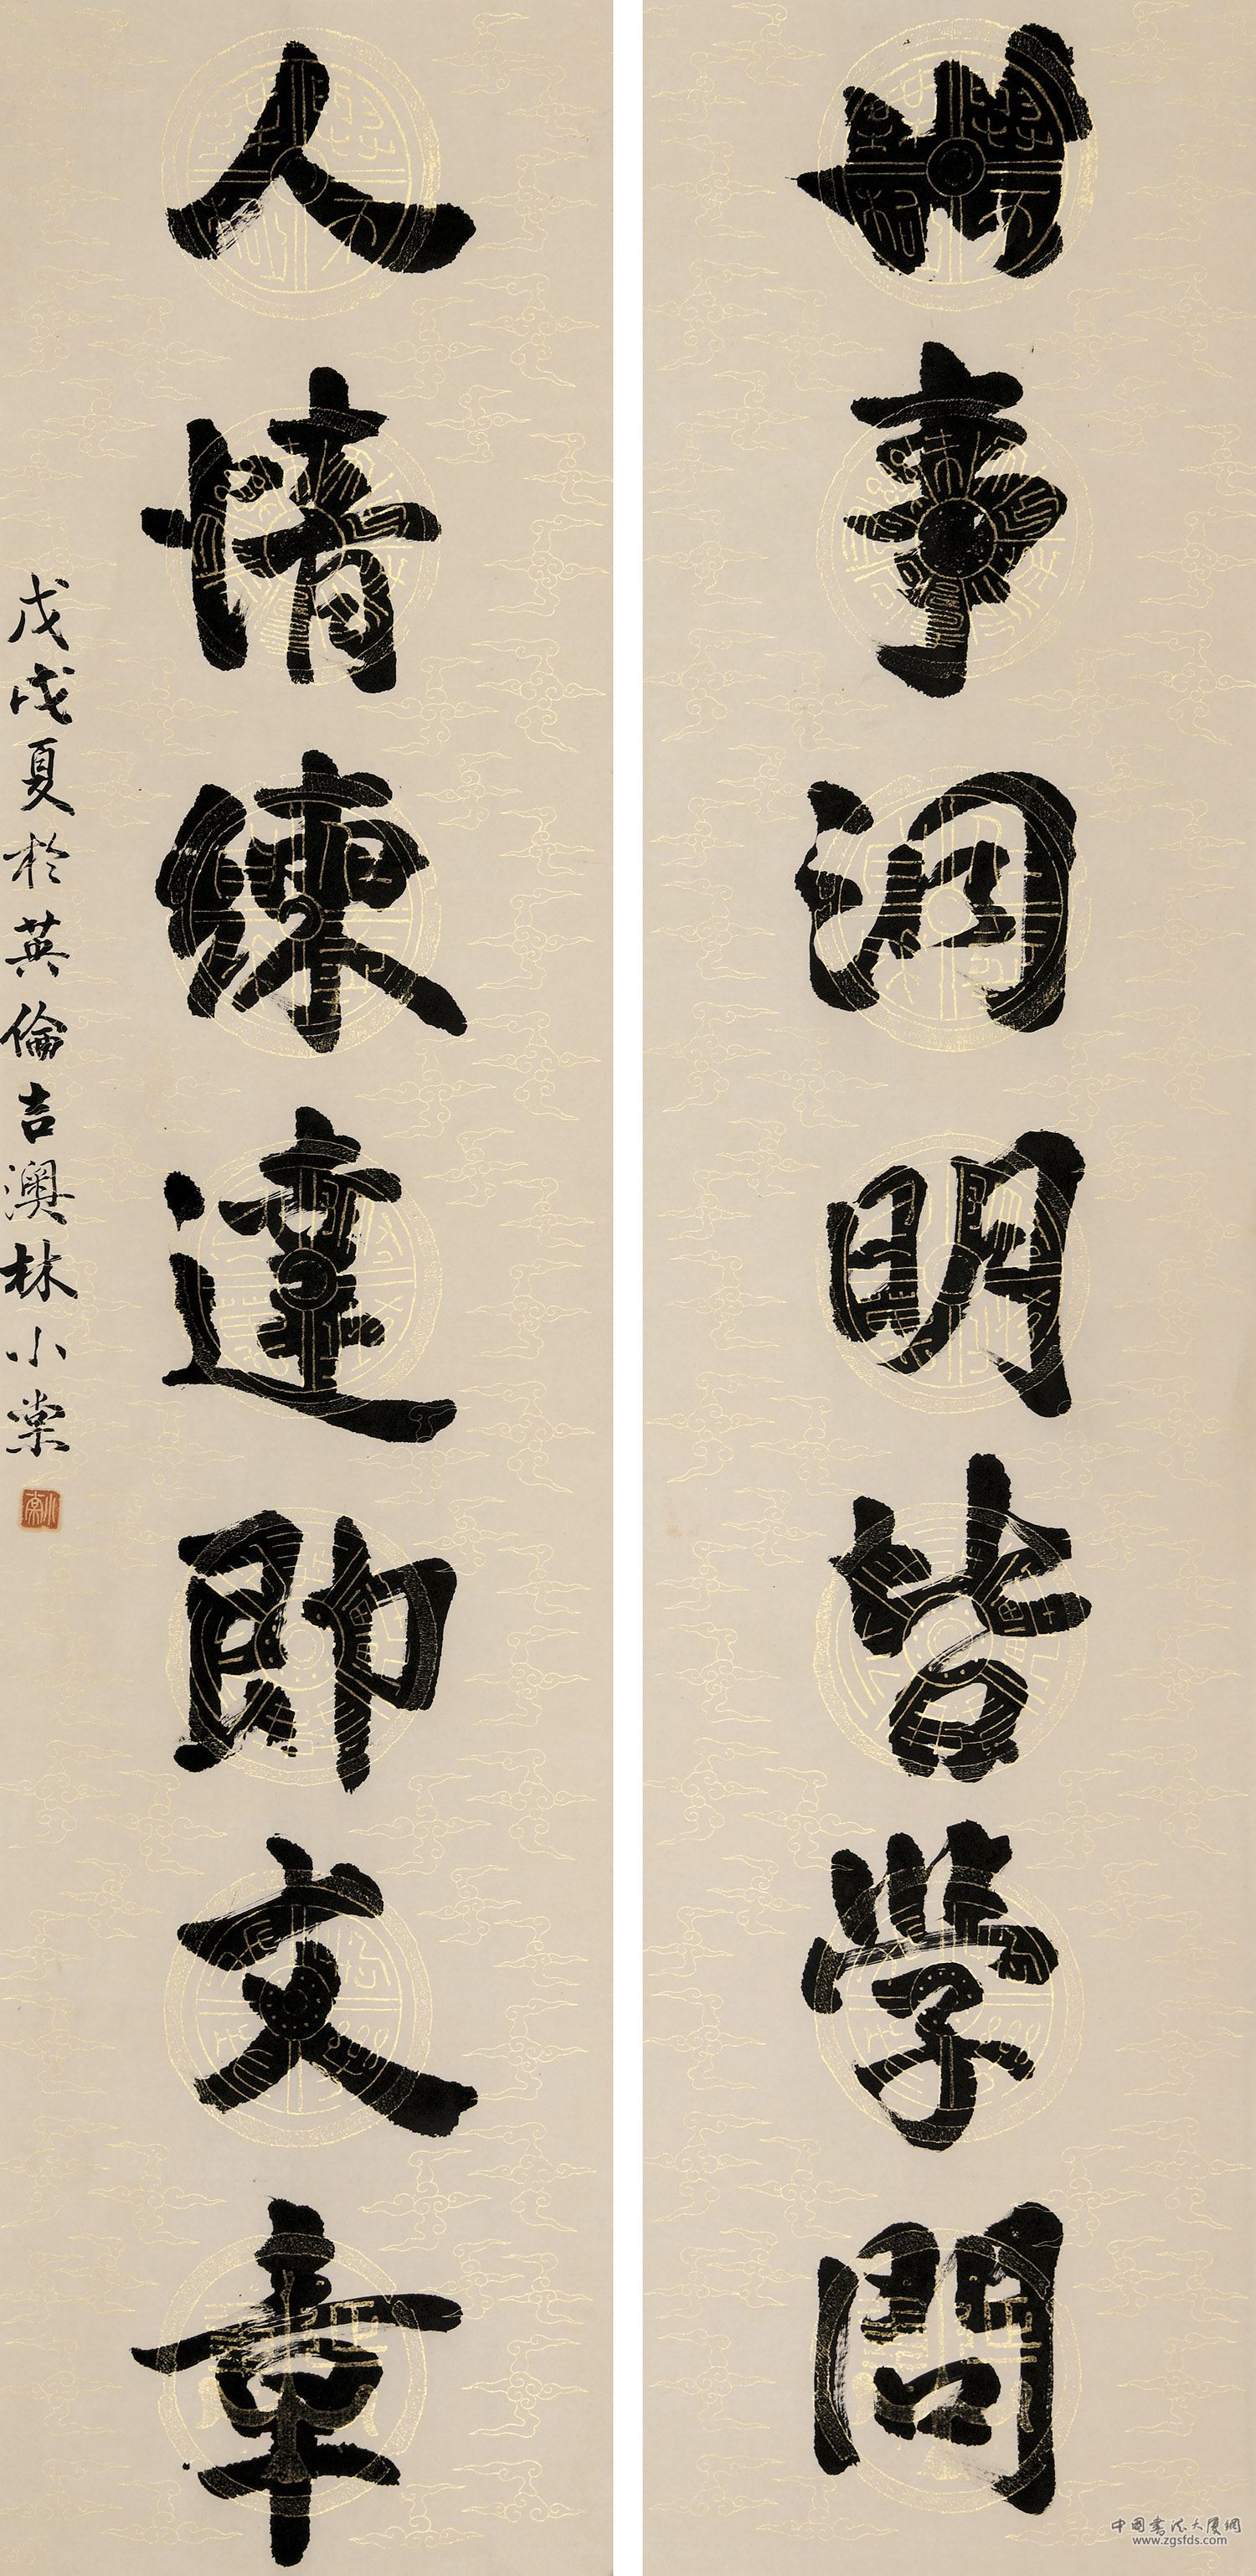 世事洞明皆学問
人情練達即文章
戊戌夏於英倫吉澳林小棠
小棠
中国書法大厦網
www.zgsfds.com